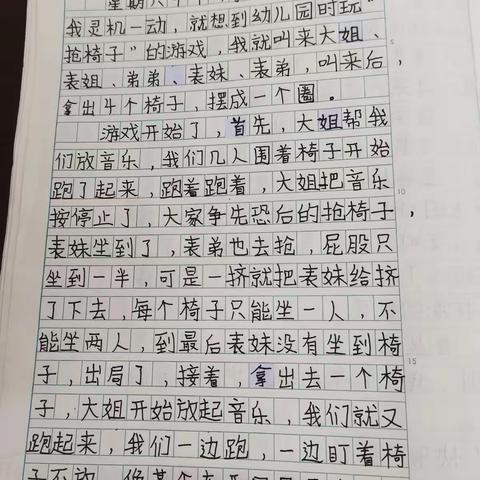 星期六下午，
我灵机一动，就想到幼儿园时玩“
抢椅子”的游戏，我就叫来大姐、
表姐、弟弟、表妹、表弟，叫来后，
拿出4个椅子，摆成一个圈。
游戏开始了，首先，大姐帮我
们放音乐，我们几人围着椅子开始
跑了起来，跑着跑着，大姐把音乐
按停止了，大家争先恐后的抢椅子，
表妹坐到了，表弟也去抢，屁股只
坐到一半，可是一挤就把表妹给挤
了下去，每个椅子只能坐一人，不
能坐两人，到最后表妹没有坐到椅
子，出局了，接着，拿出去一个椅
子，大姐开始放起音乐，我们就又
跑起来，我们一边跑，一边盯着椅
子不放，像
5
10
15